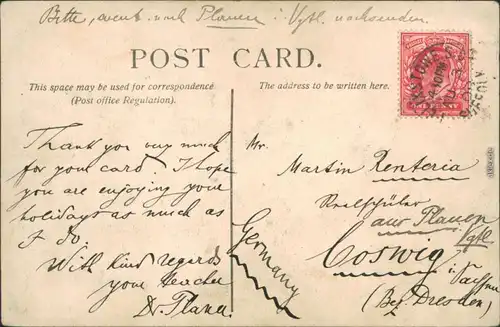 Bitte, event. nach Plauen i. Vgtl. nachsenden.
POST CARD.
This space may be used for correspondence
(Post office Regulation).
The address to be written here.
Thank you very much
for your card. I hope
you are enjoying your
holidays as much as
I do.
With kind regards
your teacher
Mr.
Martin Renteria
Realschüler
aus Plauen
Vgtl
Coswig
i. Sachsen
(Bez. Dresden)
Germany